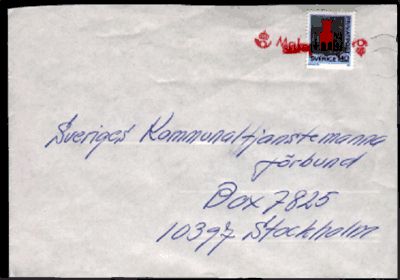 SVERIGE 140
Sveriges Kommunaltjänstemanna
förbund
Box 7825
10397 Stockholm